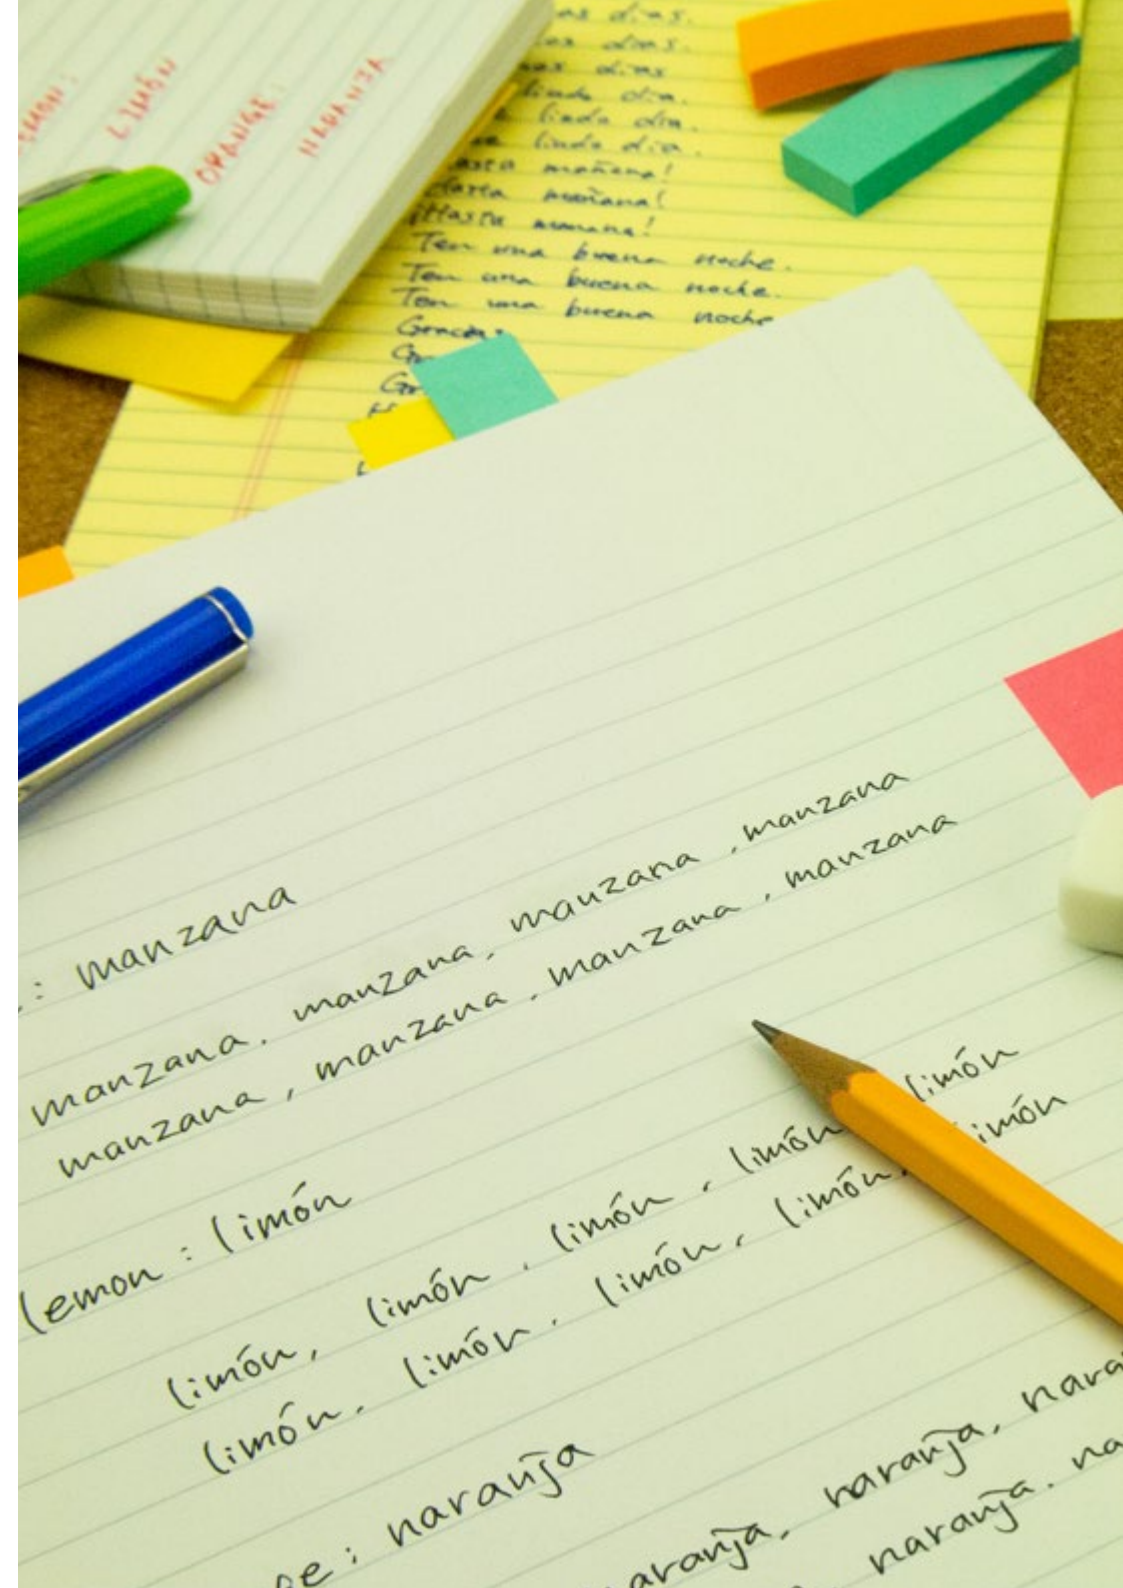 LIMÓN
ORANGE:
NARANJA
as días.
as días.
as días
lindo día.
e lindo día.
e lindo día.
asta mañana!
Hasta mañana!
¡Hasta manana!
Ten una buena noche.
Ten una buena noche.
Ten una buena noche
Gracias
: manzana
manzana, manzana, manzana, manzana
manzana, manzana, manzana, manzana
lemon : limón
limón, limón, limón, limón limón
limón, limón, limón, limón, limón
ge : naranja
aranja, naranja, nara
naranja, na